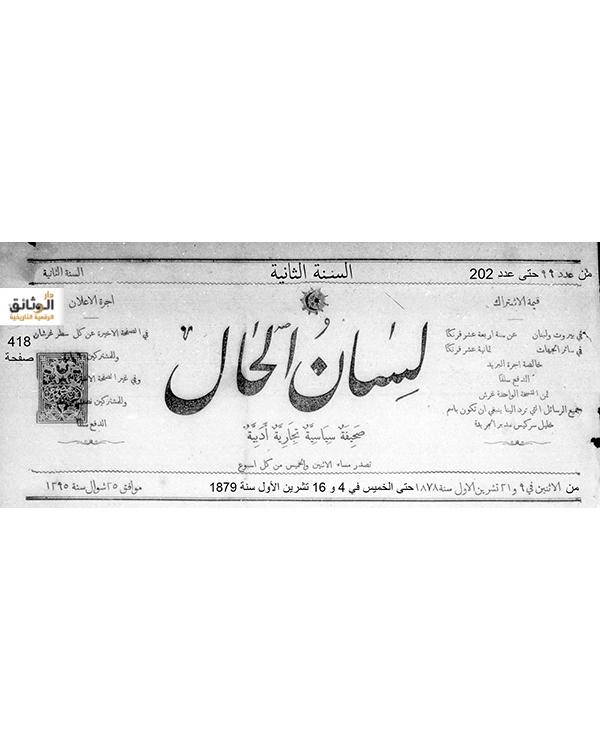 من عدد ٩٩ حتى عدد 202
السنة الثانية
السنة الثانية
دار
الوثائق
الرقمية التاريخية
418
صفحة
قيمة الاشتراك
في بيروت ولبنان عن سنة اربعة عشر فرنكًا
في سائر الجهات ثمانية عشر فرنكًا
خالصة اجرة البريد
الدفع سلفًا
ثمن الصحيفة الواحدة غرش
جميع الرسائل التي ترد الينا ينبغي ان تكون باسم
خليل سركيس مدير الجريدة
لسان الحال
صحيفة سياسية تجارية أدبية
تصدر مساء الاثنين والخميس من كل اسبوع
اجرة الاعلان
في الصفحة الاخيرة عن كل سطر غرشان
والمشتركين
وفي غير الصفحة
والمشتركين
الدفع سلفًا
من الاثنين في ٩ و ٢١ تشرين الاول سنة ١٨٧٨ حتى الخميس في 4 و 16 تشرين الأول سنة 1879
موافق ٢٥ شوال سنة ١٢٩٥